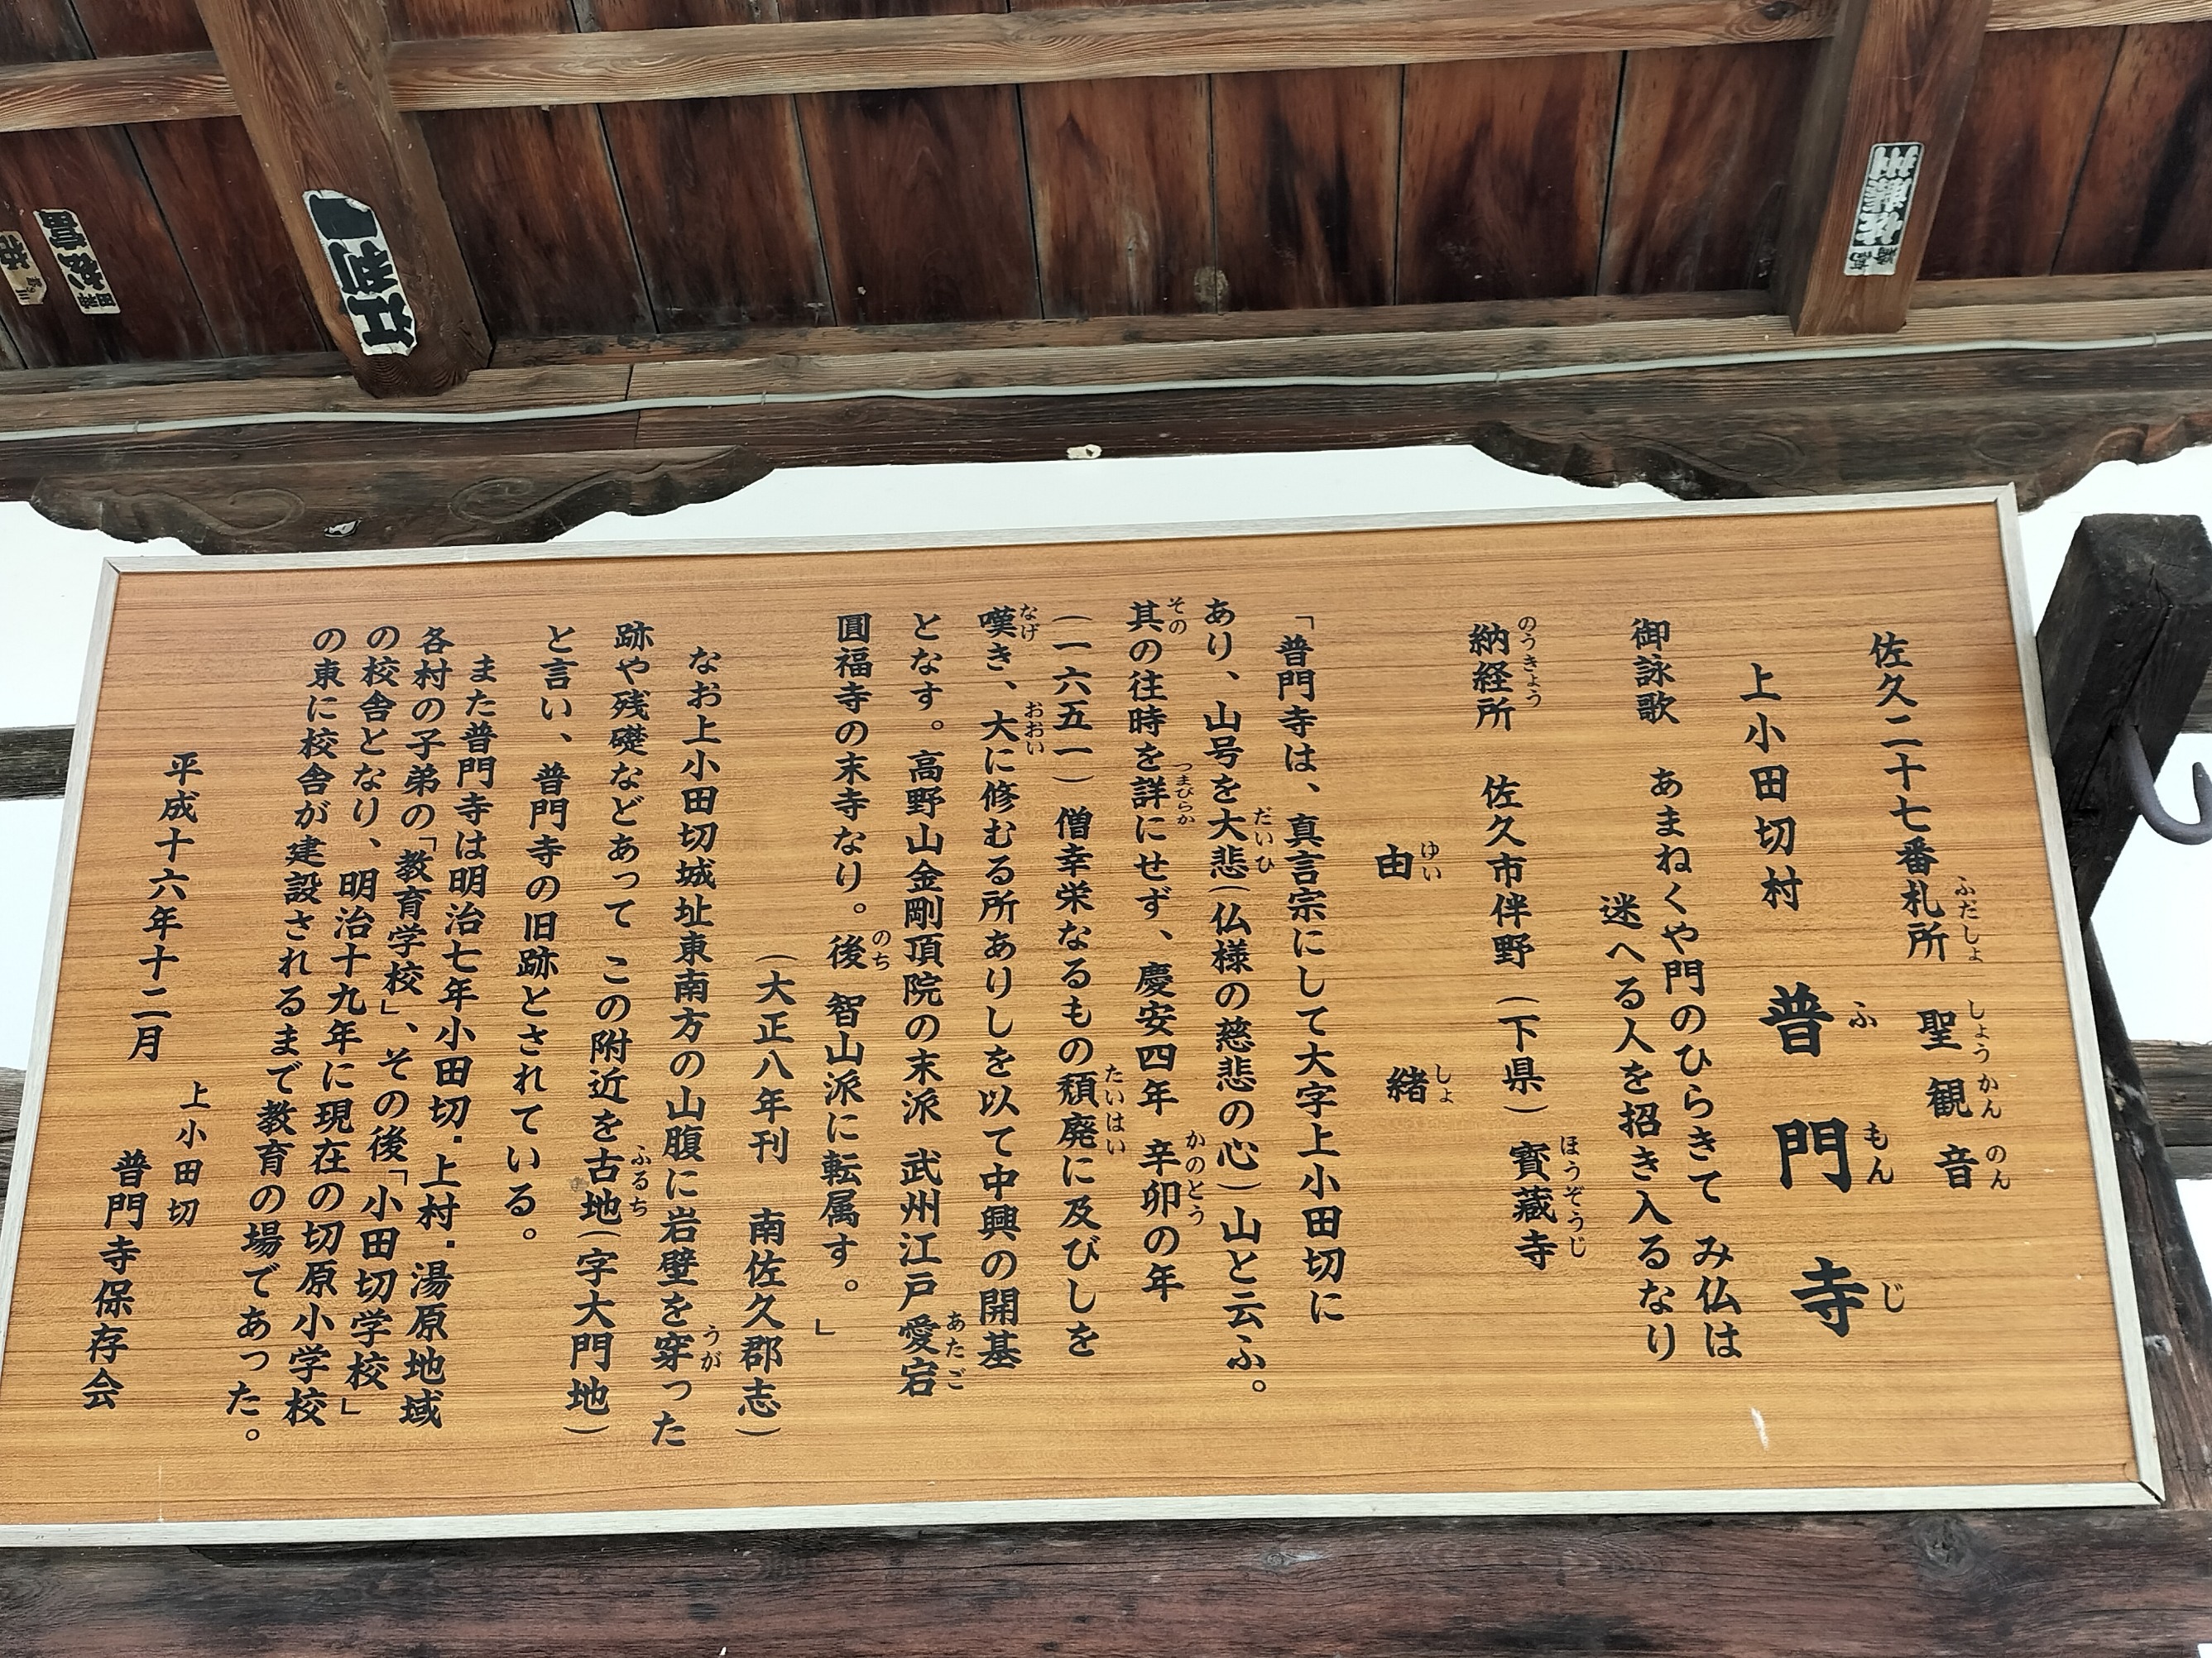 佐久二十七番札所　聖観音
ふだしょ　しょうかんのん
上小田切村　普門寺
ふもんじ
御詠歌　あまねくや門のひらきて　み仏は
迷へる人を招き入るなり
納経所　佐久市伴野（下県）寳蔵寺
のうきょう　ほうぞうじ
由緒
ゆいしょ
「普門寺は、真言宗にして大字上小田切に
あり、山号を大悲（仏様の慈悲の心）山と云ふ。
だいひ
其の往時を詳にせず、慶安四年　辛卯の年
その　つまびらか　かのとう
（一六五一）僧幸栄なるもの頽廃に及びしを
たいはい
嘆き、大に修むる所ありしを以て中興の開基
なげ　おおい
となす。高野山金剛頂院の末派　武州江戸愛宕
あたご
圓福寺の末寺なり。後　智山派に転属す。」
のち
（大正八年刊　南佐久郡志）
なお上小田切城址東南方の山腹に岩壁を穿った
うが
跡や残礎などあって　この附近を古地（字大門地）
ふるち
と言い、普門寺の旧跡とされている。
また普門寺は明治七年小田切・上村・湯原地域
各村の子弟の「教育学校」、その後「小田切学校」
の校舎となり、明治十九年に現在の切原小学校
の東に校舎が建設されるまで教育の場であった。
平成十六年十二月
上小田切
普門寺保存会
江利